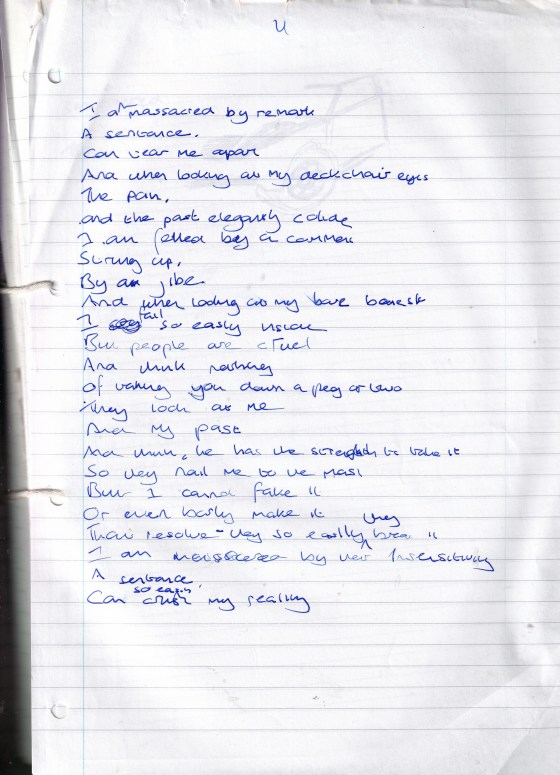 U
I am massacred by remark
A sentence.
Can tear me apart
And when looking at my deckchair eyes
The pain,
and the past elegantly colide
I am felled by a comment
Strung up,
By a jibe
And when looking at my bare breast
I fail so easily inside
But people are cruel
And think nothing
Of taking you down a peg or two
They look at me
And my past
And think, he has the strength to take it
So they nail me to the mast
But I cannot fake it
Or even barly make it
Their resolve - they so easily they break it
I am massacred by their Insensitivity
A sentence,
Can so easily crush my reality